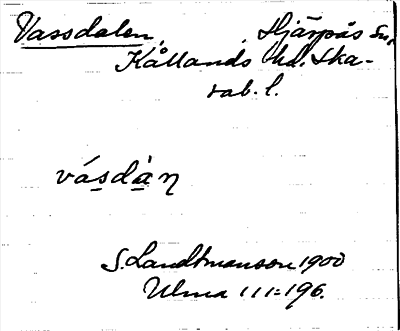 Vassdalen, Hjärpås sn,
Kållands hd. Ska-
rab. l.
vásdàn
S. Landtmanson 1900
Ulma 111:196.